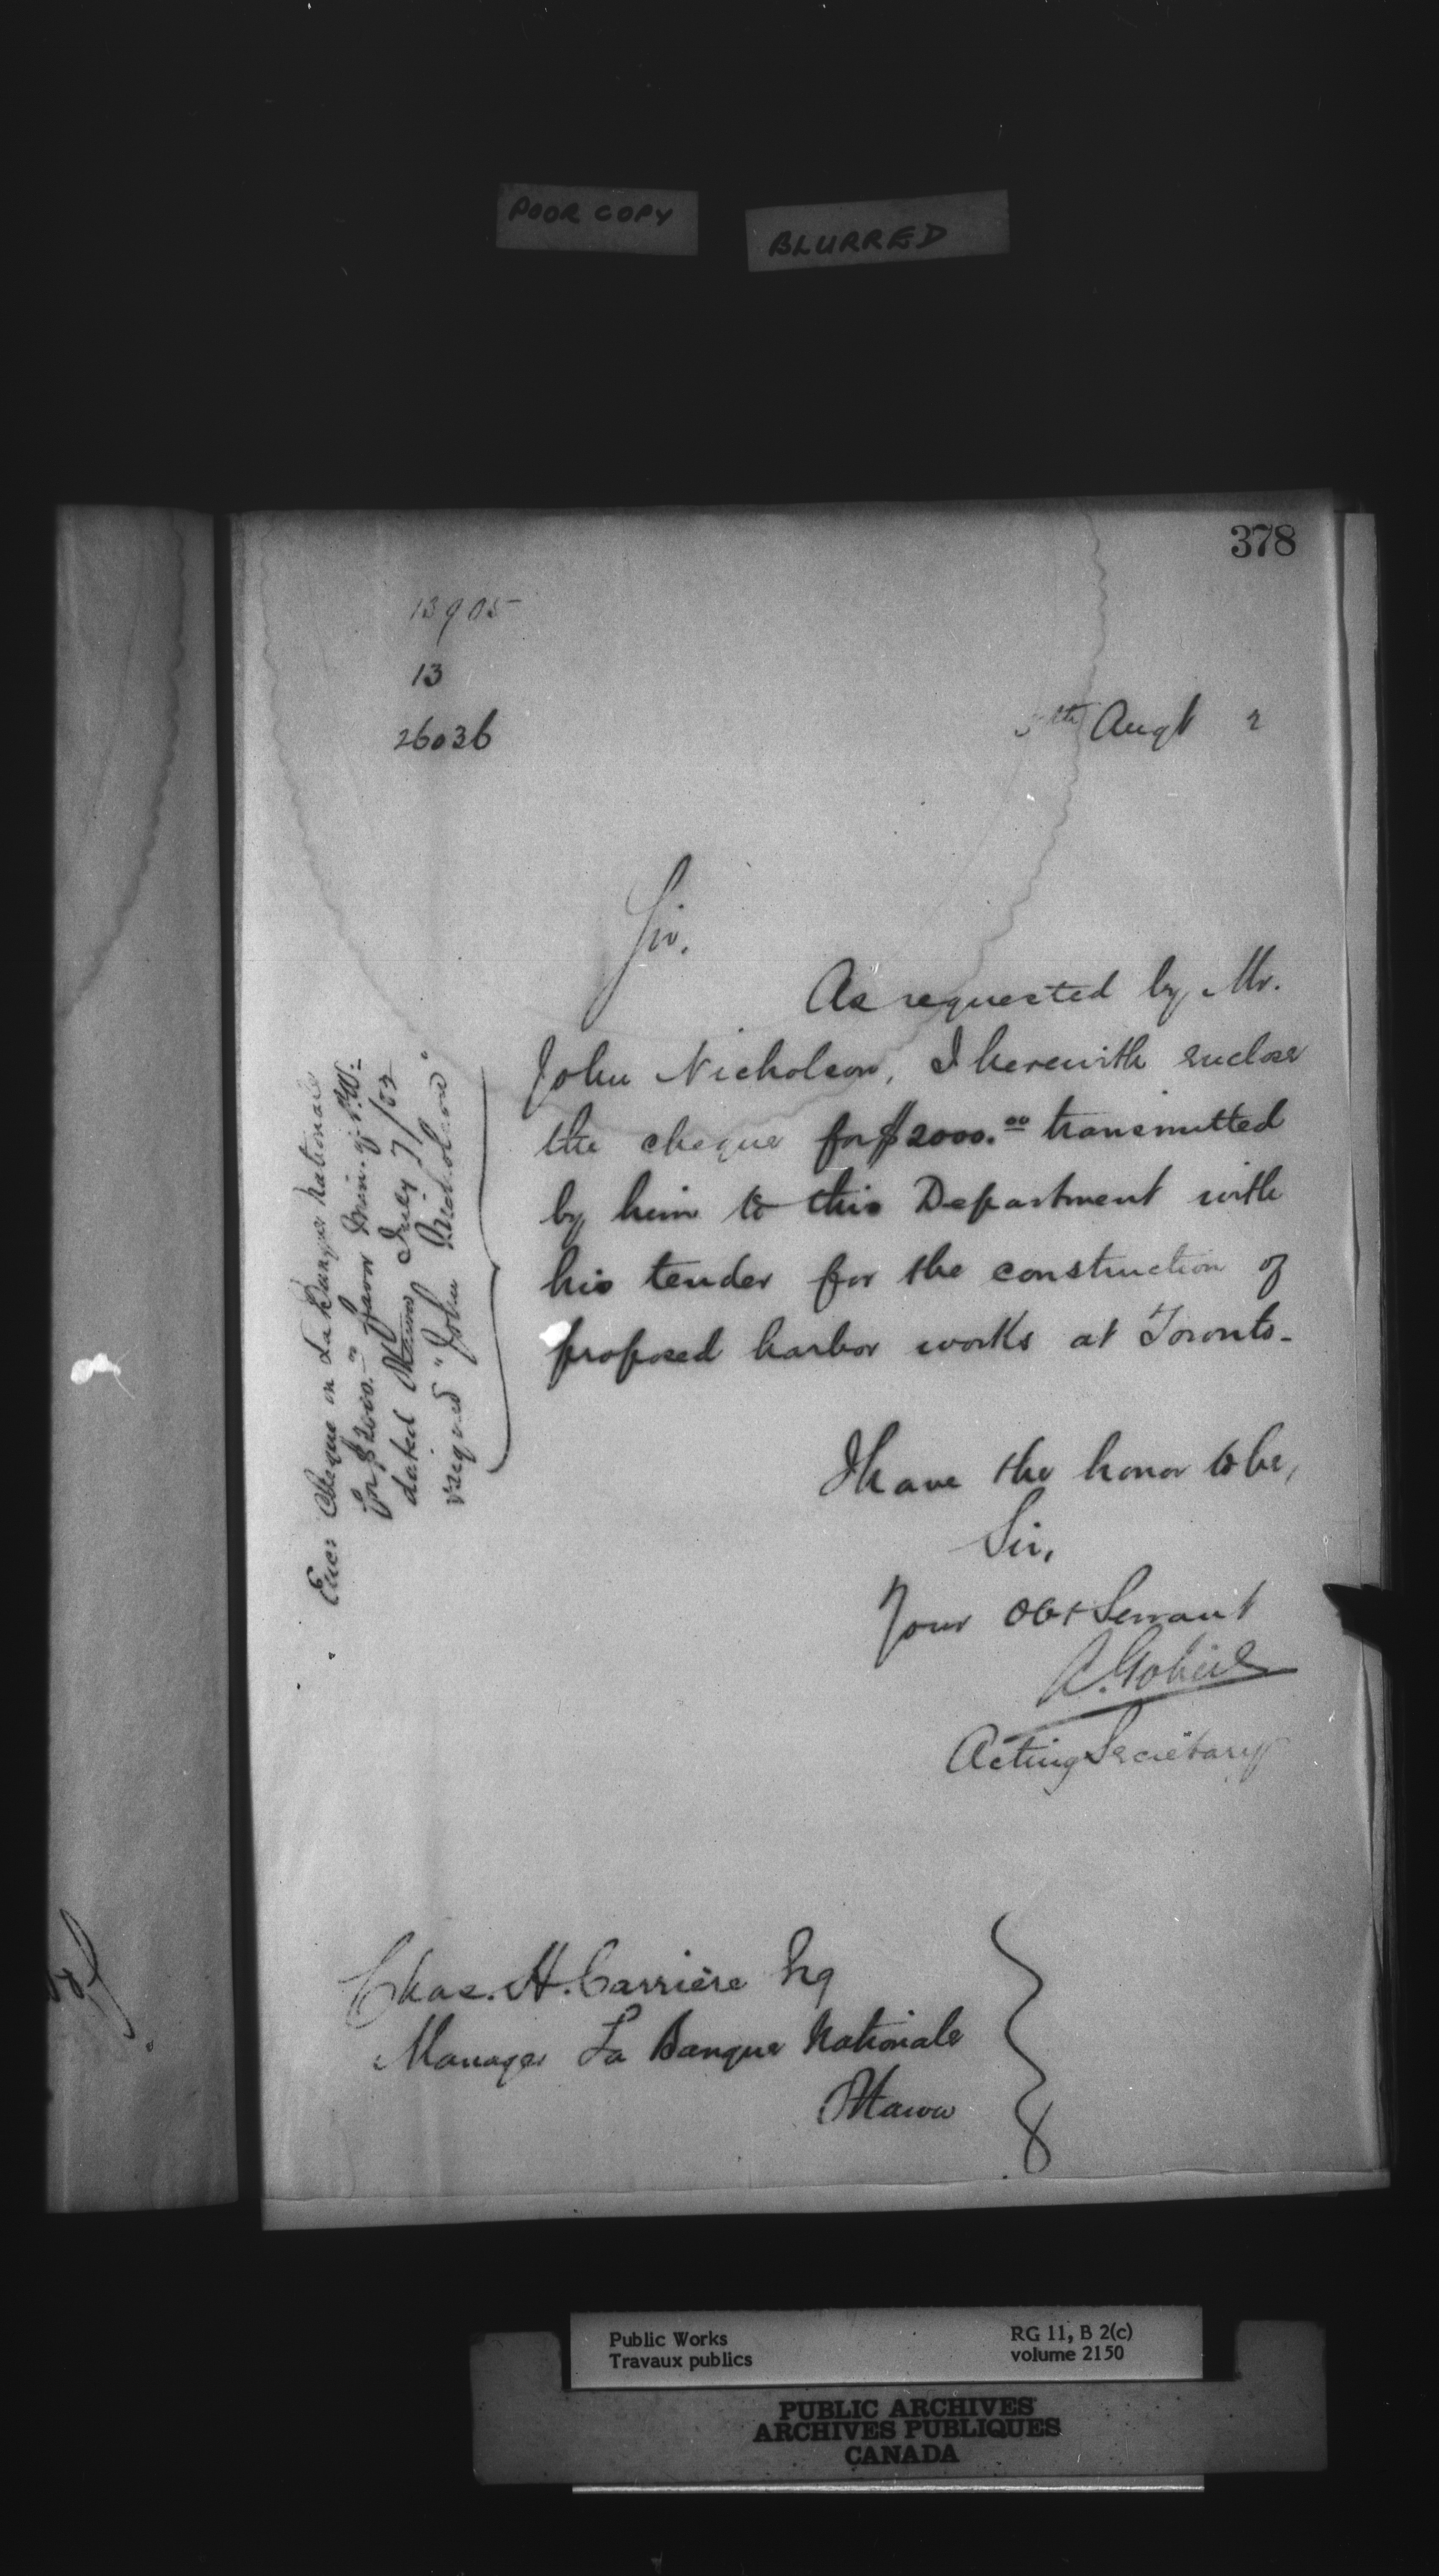 POOR COPY
BLURRED
378
13905
13
26036
th Augt 2
Sir,
As requested by Mr.
John Nicholson, I herewith enclose
the cheque for $2000.00 transmitted
by him to this Department with
his tender for the construction of
proposed harbor works at Toronto-
I have the honor to be,
Sir,
Your Obt Servant
A. Gobeil
Acting Secretary
Encs Cheque on La Banque Nationale
for $2000.00 favor Min. of P.W.
dated Ottawa July
signed "John Nicholson"
Chas. H. Carrière Esq
Manager La Banque Nationale
Ottawa
Public Works
Travaux publics
RG 11, B 2(c)
volume 2150
PUBLIC ARCHIVES
ARCHIVES PUBLIQUES
CANADA